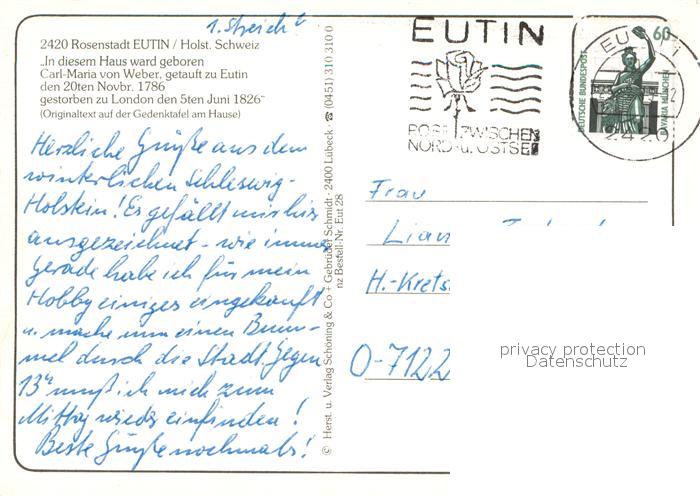 1. Streich
2420 Rosenstadt EUTIN / Holst. Schweiz
„In diesem Haus ward geboren
Carl-Maria von Weber, getauft zu Eutin
den 20ten Novbr. 1786
gestorben zu London den 5ten Juni 1826“
(Originaltext auf der Gedenktafel am Hause)
Herzliche Grüße aus dem
winterlichen Schleswig-
Holstein! Es gefällt mir hier
ausgezeichnet - wie immer
gerade habe ich für mein
Hobby einiges eingekauft
u. mache nun einen Bum-
mel durch die Stadt. Gegen
13 muß ich mich zum
Mittag wieder einfinden!
Beste Grüße nochmals!
© Herst. u. Verlag Schöning & Co + Gebrüder Schmidt · 2400 Lübeck · ☎ (0451) 310 310 0
nz Bestell-Nr. Eut 28
EUTIN
ROSE ZWISCHEN
NORD- u. OSTSEE
EUTIN
2420
60
DEUTSCHE BUNDESPOST
BAVARIA MÜNCHEN
Frau
Lian
H.-Krets
O-7122
privacy protection
Datenschutz